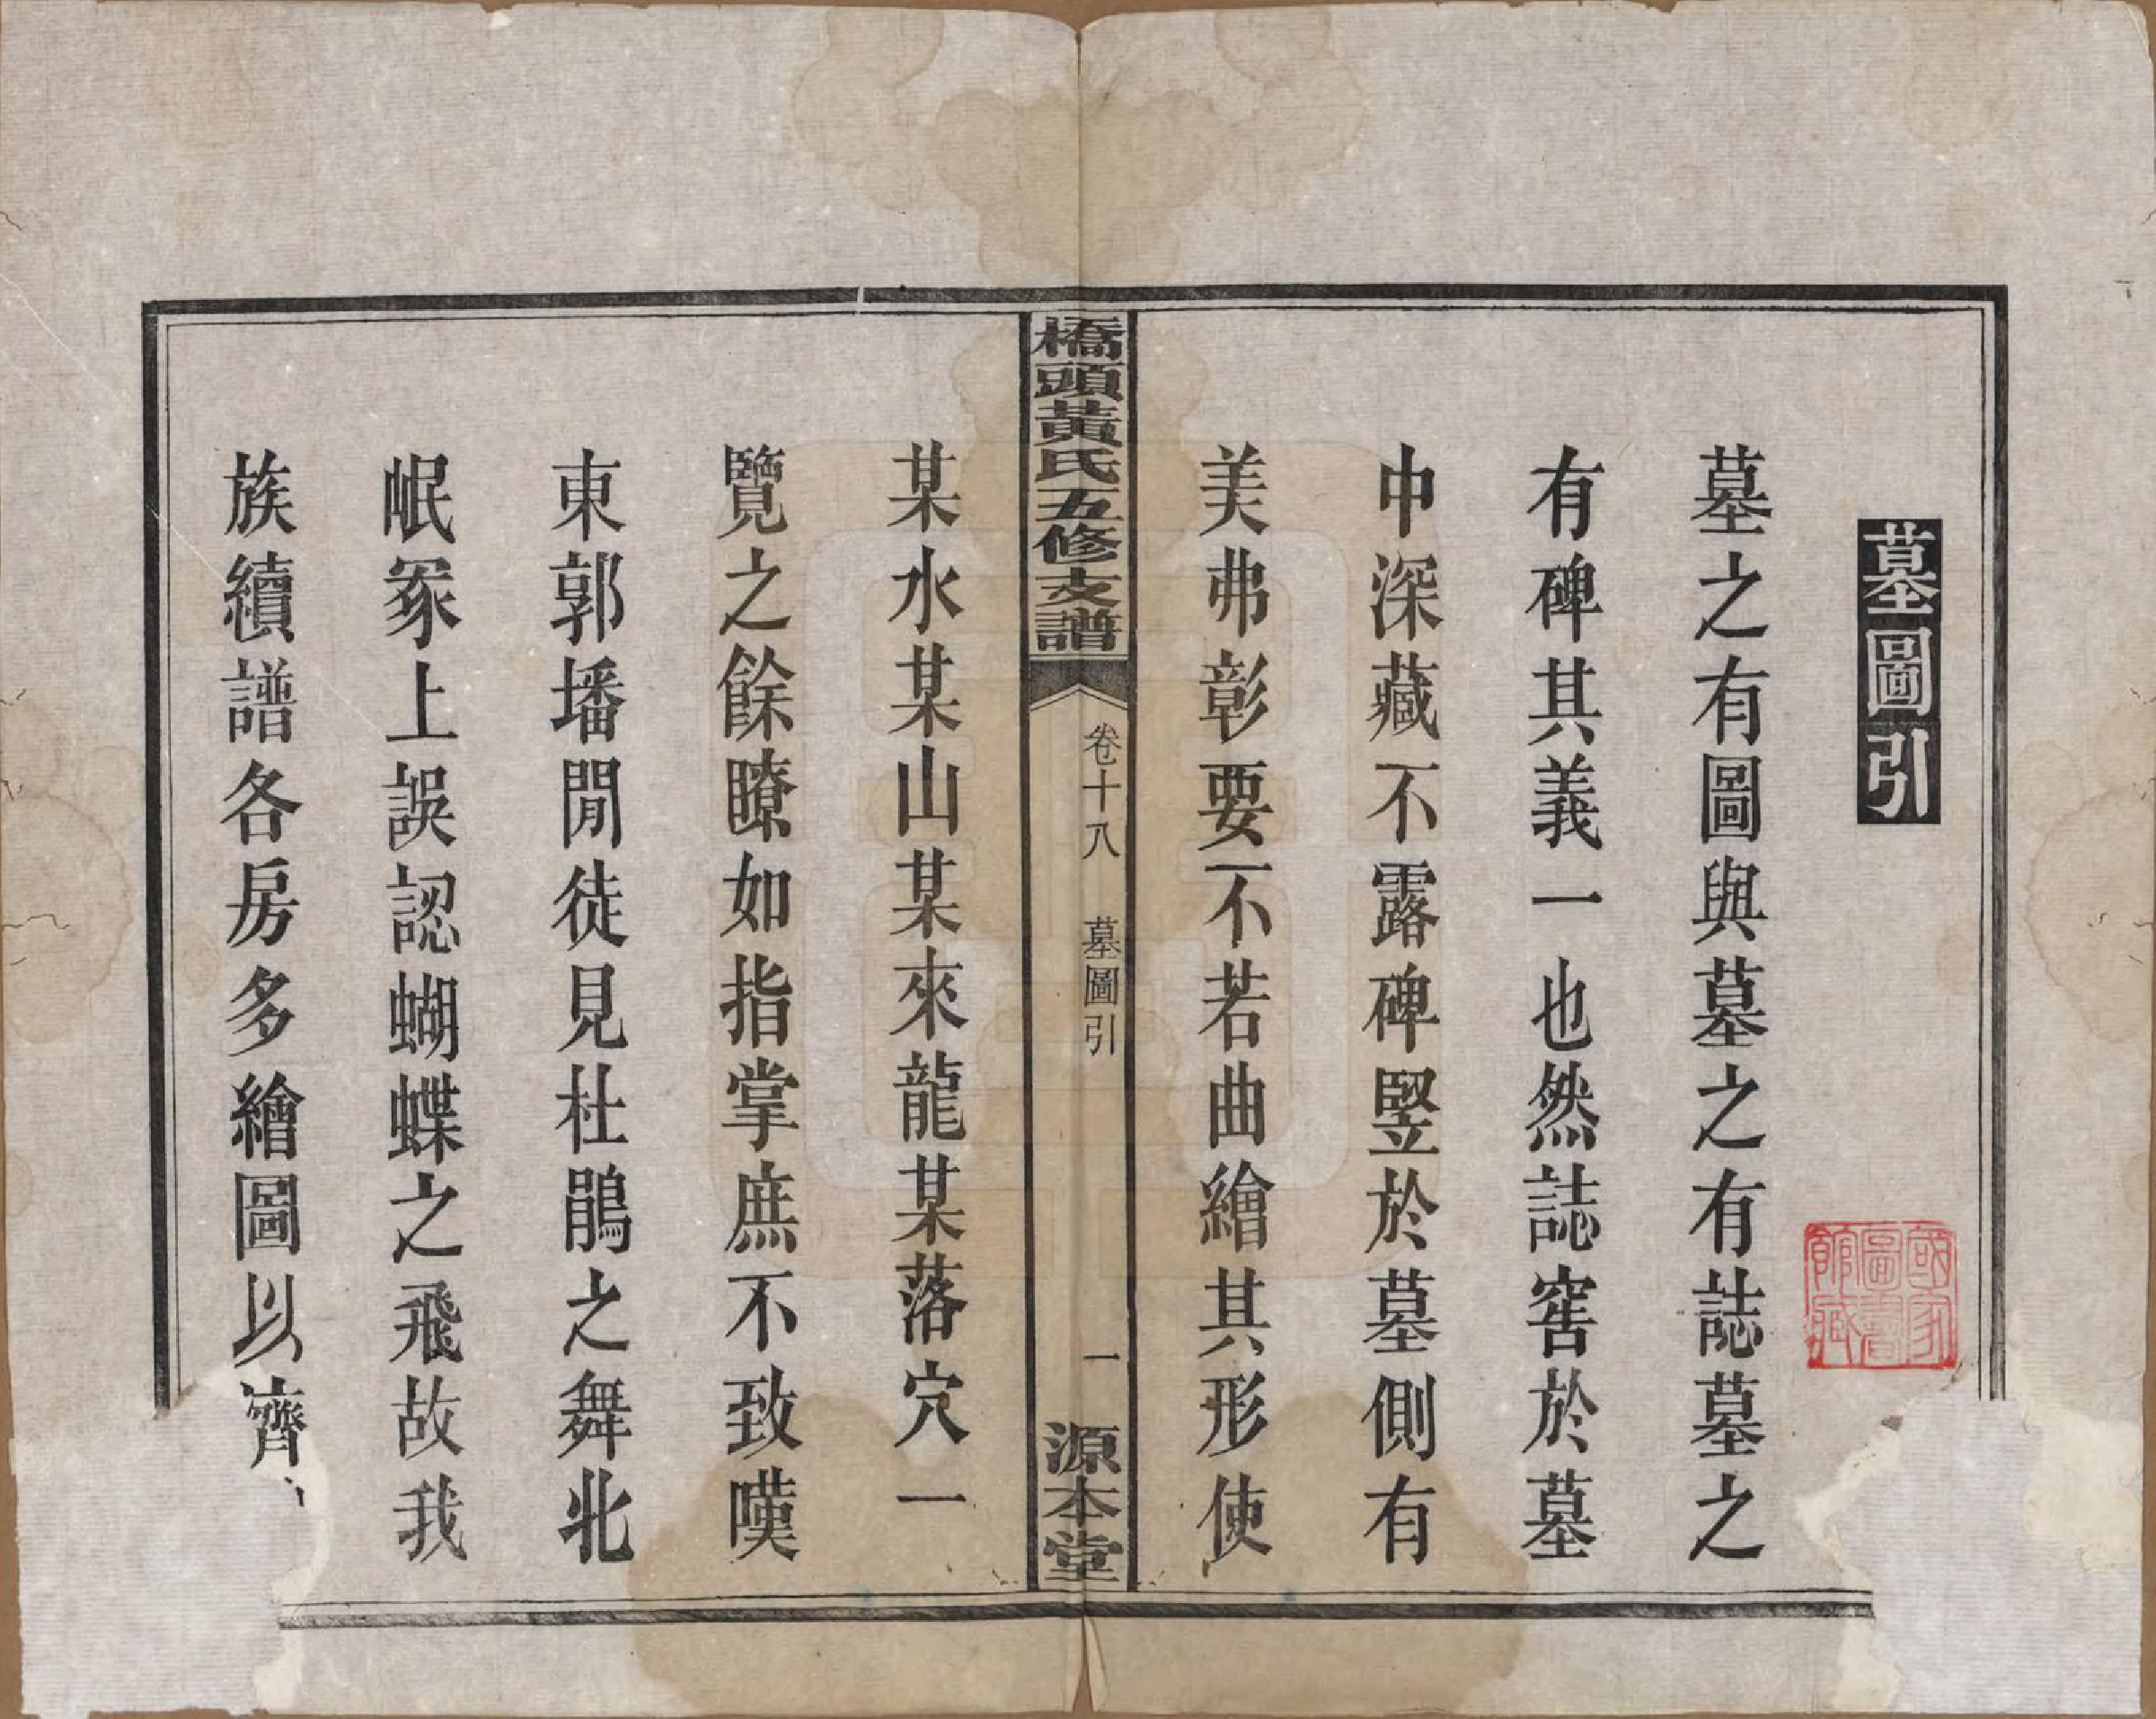 墓圖引
墓之有圖與墓之有誌墓之
有碑其義一也然誌窖於墓
中深藏不露碑竪於墓側有
美弗彰要不若曲繪其形使
橋頭黃氏五修支譜
卷十八
墓圖引
一
源本堂
某水某山某來龍某落穴一
覽之餘瞭如指掌庶不致嘆
東郭墦閒徒見杜鵑之舞北
岷冢上誤認蝴蝶之飛故我
族續譜各房多繪圖以濟
國家
圖書
館藏